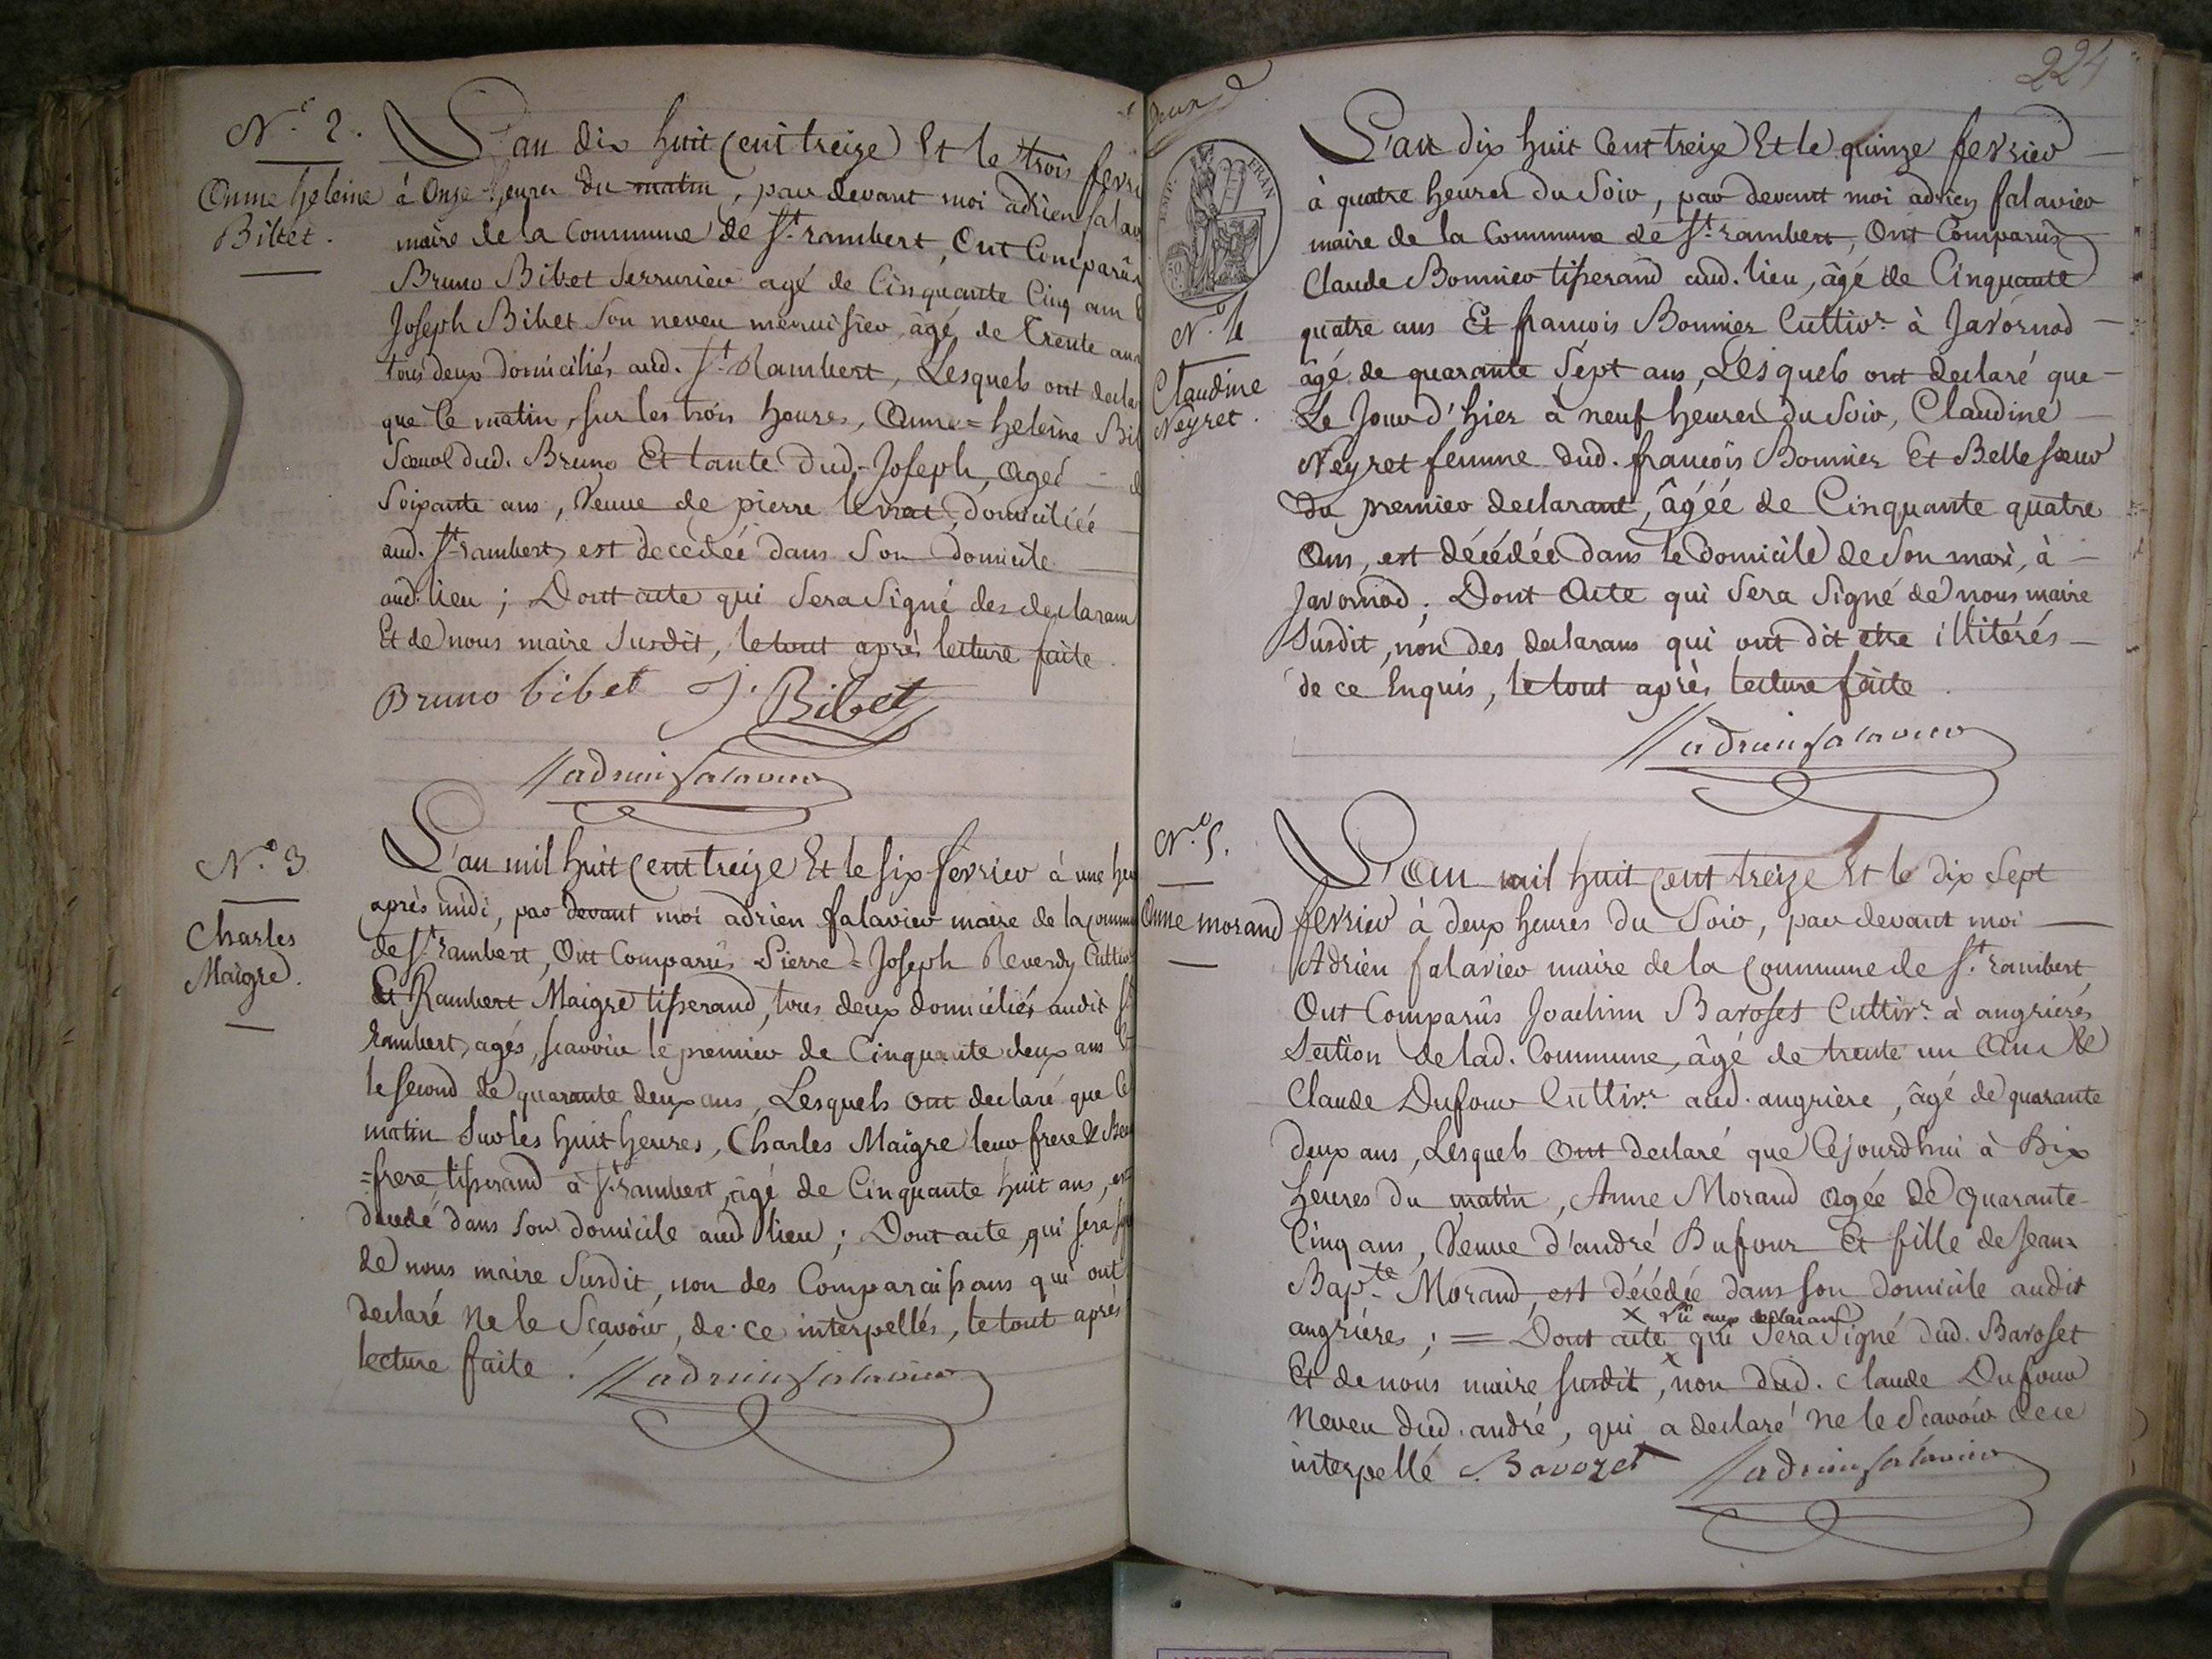 N.o 2.
Anne heleine
Bibet.
L'an dix huit Cent treize Et le trois fevri
à Onze heures du matin, par devant moi adrien falav
maire de la Commune de St. rambert, Ont Comparûs
Bruno Bibet Serrurier agé de Cinquante Cinq ans
Joseph Bibet Son neveu menuisier, âgé de Trente ans
tous deux domiciliés aud. St. Rambert, Lesquels ont decla
que Ce matin, sur les trois heures, Anne=heleine Bib
Sœur dud. Bruno Et tante dud. Joseph, Ageé — d
Soixante ans, Veuve de pierre levrat, domiciliée
aud. St. rambert, est decedeé dans Son domicile —
aud. lieu ; Dont acte qui Sera Signé des declarans
Et de nous maire Susdit, le tout après lecture faite.
Bruno bibet J. Bibet
adrien falavier
N.o 3
Charles
Maigre.
L'an mil huit Cent treize Et le Six fevrier à une heu
après midi, par devant moi adrien falavier maire de la commu
de St. rambert, Ont Comparûs Pierre=Joseph Reverdy Cultiv
Et Rambert Maigre tisserand, tous deux domiciliés audit St
rambert, agés, scavoir le premier de Cinquante deux ans
le second de quarante deux ans, Lesquels ont declaré que Ce
matin Sur les huit heures, Charles Maigre leur frere & Beau
=frere tisserand à St. rambert, âgé de Cinquante huit ans, est
decedé dans Son domicile aud. lieu ; Dont acte, qui sera
de nous maire Susdit, non des Comparaissans qui ont
declaré Ne le Scavoir, de ce interpellés, le tout après
lecture faite.
adrien falavier
224
EMP. FRAN
N.o 4
Claudine
Neyret.
L'an dix huit Cent treize Et le quinze fevrier —
à quatre heures du Soir, par devant moi adrien falavier
maire de la Commune de St. rambert, Ont Comparûs
Claude Bonnier tisserand aud. lieu, âgé de Cinquante
quatre ans Et francois Bonnier Cultivr. à Javornod —
âgé de quarante Sept ans, Lesquels ont declaré que —
Le Jour d'hier à neuf heures du Soir, Claudine —
Neyret femme dud. francois Bonnier Et Belle sœur
du premier declarant, âgée de Cinquante quatre
Ans, est décédée dans le domicile de Son mari, à —
Javornod. Dont Acte qui Sera Signé de nous maire
Susdit, non des declarans qui ont dit etre illitérés —
de ce Enquis, le tout après lecture faite.
adrien falavier
N.o 5.
Anne morand
L'An mil huit Cent treize Et le dix Sept
fevrier à deux heures du Soir, par devant moi —
Adrien falavier maire de la Commune de St. rambert,
Ont Comparûs Joachim Baroset Cultivr. à angrieres
Section de lad. Commune, âgé de trente un An &
Claude Dufour Cultivr. aud. angriere, âgé de quarante
deux ans, Lesquels Ont declaré que Cejourdhui à Dix
heures du matin, Anne Morand Agée de quarante
Cinq ans, Veuve d'andré Dufour Et fille de Jean=
Bapte. Morand, est décédée dans Son domicile audit
angrieres ; = Dont acte qui Sera Signé dud. Baroset
Et de nous maire susdit, x non dud. Claude Dufour
x Lû aux declarans
Neveu dud. andré, qui a declaré ne le Scavoir de ce
interpellé J. Barozet adrien falavier